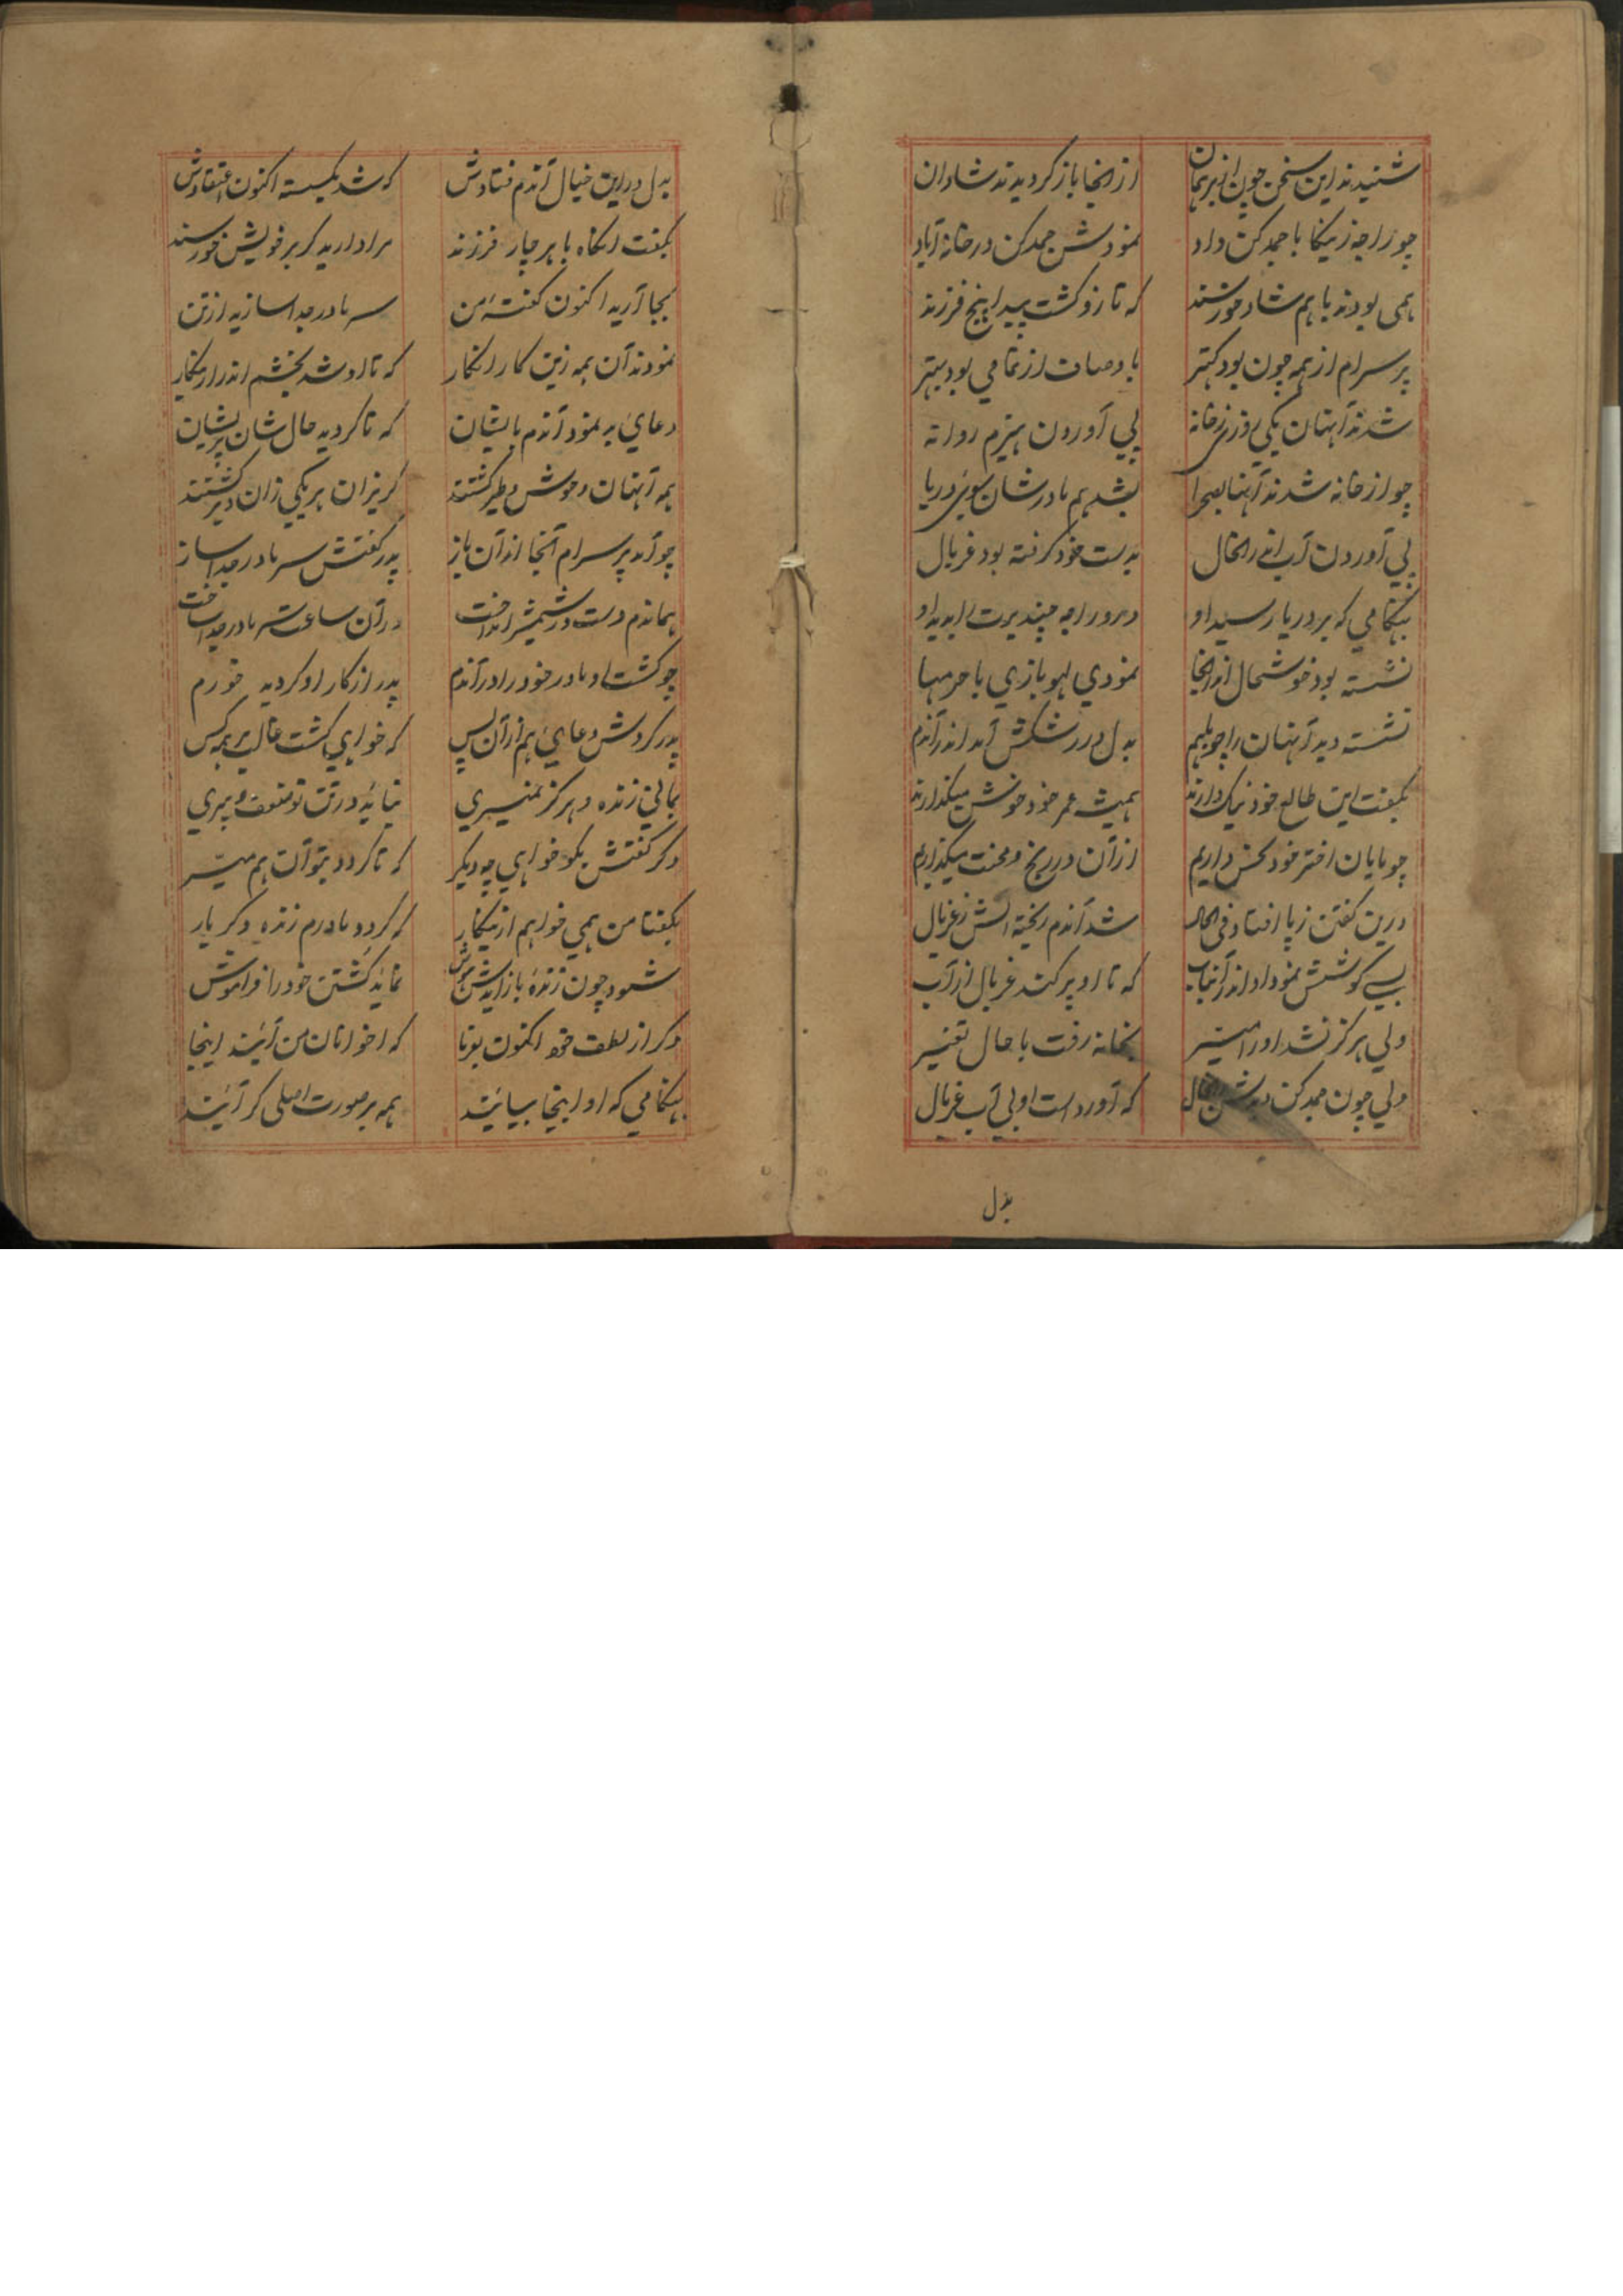 شنیدند این سخن چون از برهمان از انجا باز کردیدند شادان
چو راجه زنیکا با جمدکن داد نمودش جمدکن در خانه آباد
همی بودند با هم شاد و خورسند که تا زو کشت پیدا پنج فرزند
پرسرام از همه چون بود کهتر با وصاف از تمامی بود بهتر
شدند آنهان یکی روزی ز خانه پی آوردن هیزم روانه
چو از خانه شدند آنها بصحرا بشد هم مادرشان سوی دریا
پی آوردن آب اندر انحال بدست خود کرفته بود غربال
بهنکامی که بر دریا رسید او در و راجه را بدید او
نشسته بود خوشحال اندر انجا نمودی لهو بازی با حرمها
نشسته دید آنهان را چو باهم بدل در رشکش آمد اندر آندم
بکفت این طالع خود نیک دارند همیشه عمر خود خوش میکذارند
چو مایان اختر خود نحس داریم از آن در رنج و محنت میکذاریم
درین کفتن ز پا افتاد فی الحال شد آندم ریخته آبش ز غربال
بسی کوشش نمود او اندر آنباب که تا او پر کند غربال از آب
ولی هرکز نشد او را میسر بخانه رفت با حال تغییر
ولی چون جمدکن دیدش انحال که آورد است او بی آب غربال
بدل
بدل در این خیال آندم فتادش که شد بکسسته اکنون اعتقادش
بکفت انکاه با هر چار فرزند مرا دارید کر بر خویش خورسند
بجا آرید اکنون کفتهٔ من سر مادر جدا سازید از تن
نمودند آن همه زین کار انکار که تا او شد بخشم اندر ازینکار
دعای بد نمود آندم بایشان که تا کردید حال شان پریشان
همه آنهان وحوش و طیر کشتند کریزان هر یکی زان دیر کشتند
چو آمد پرسرام آنجا اندر آن باز پدر کفتش سر مادر جدا ساز
هماندم دست در شمشیر انداخت در آن ساعت سر مادر جدا ساخت
چو کشت او مادر خود را در آندم پدر از کار او کردید خورم
پدر کردش دعای هم از آن پس که خواهی کشت غالب بر همه کس
بمانی زنده و هرکز نمیری نیاید در تن تو ضعف و پیری
دکر کفتش بکو خواهی چه دیکر که تا کردد بتو آن هم میسر
بکفتا من همی خواهم ازینکار که کردد مادرم زنده دکر بار
شود چون زنده باز آیدش هوش نماید کشتن خود را فراموش
دکر از لطف خود اکنون بفرما که اخوانان من آیند اینجا
بهنکامی که او اینجا بیایند همه بر صورت اصلی کر آیند